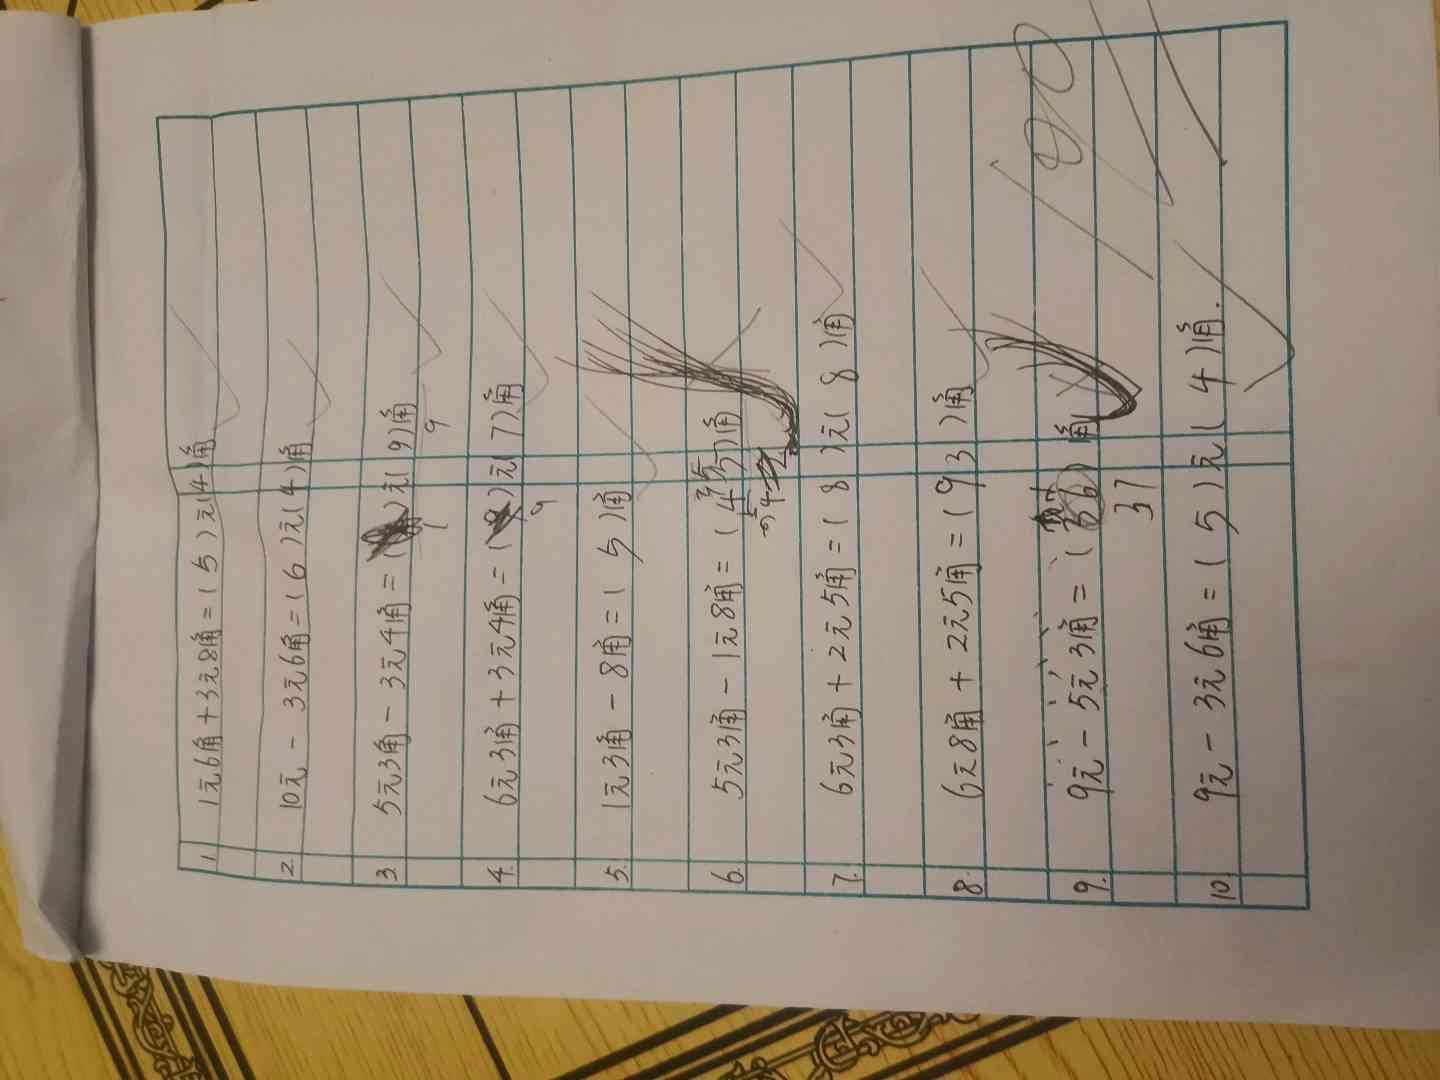 1. 1元6角+3元8角=(5)元(4)角
2. 10元-3元6角=(6)元(4)角
3. 5元3角-3元4角=( )元(9)角
1 9
4. 6元3角+3元4角=( )元(7)角
9
5. 1元3角-8角=(5)角
6. 5元3角-1元8角=( )角
7. 6元3角+2元5角=(8)元(8)角
8. 6元8角+2元5角=(93)角
9. 9元-5元3角=(36)角
37
10. 9元-3元6角=(5)元(4)角.
100